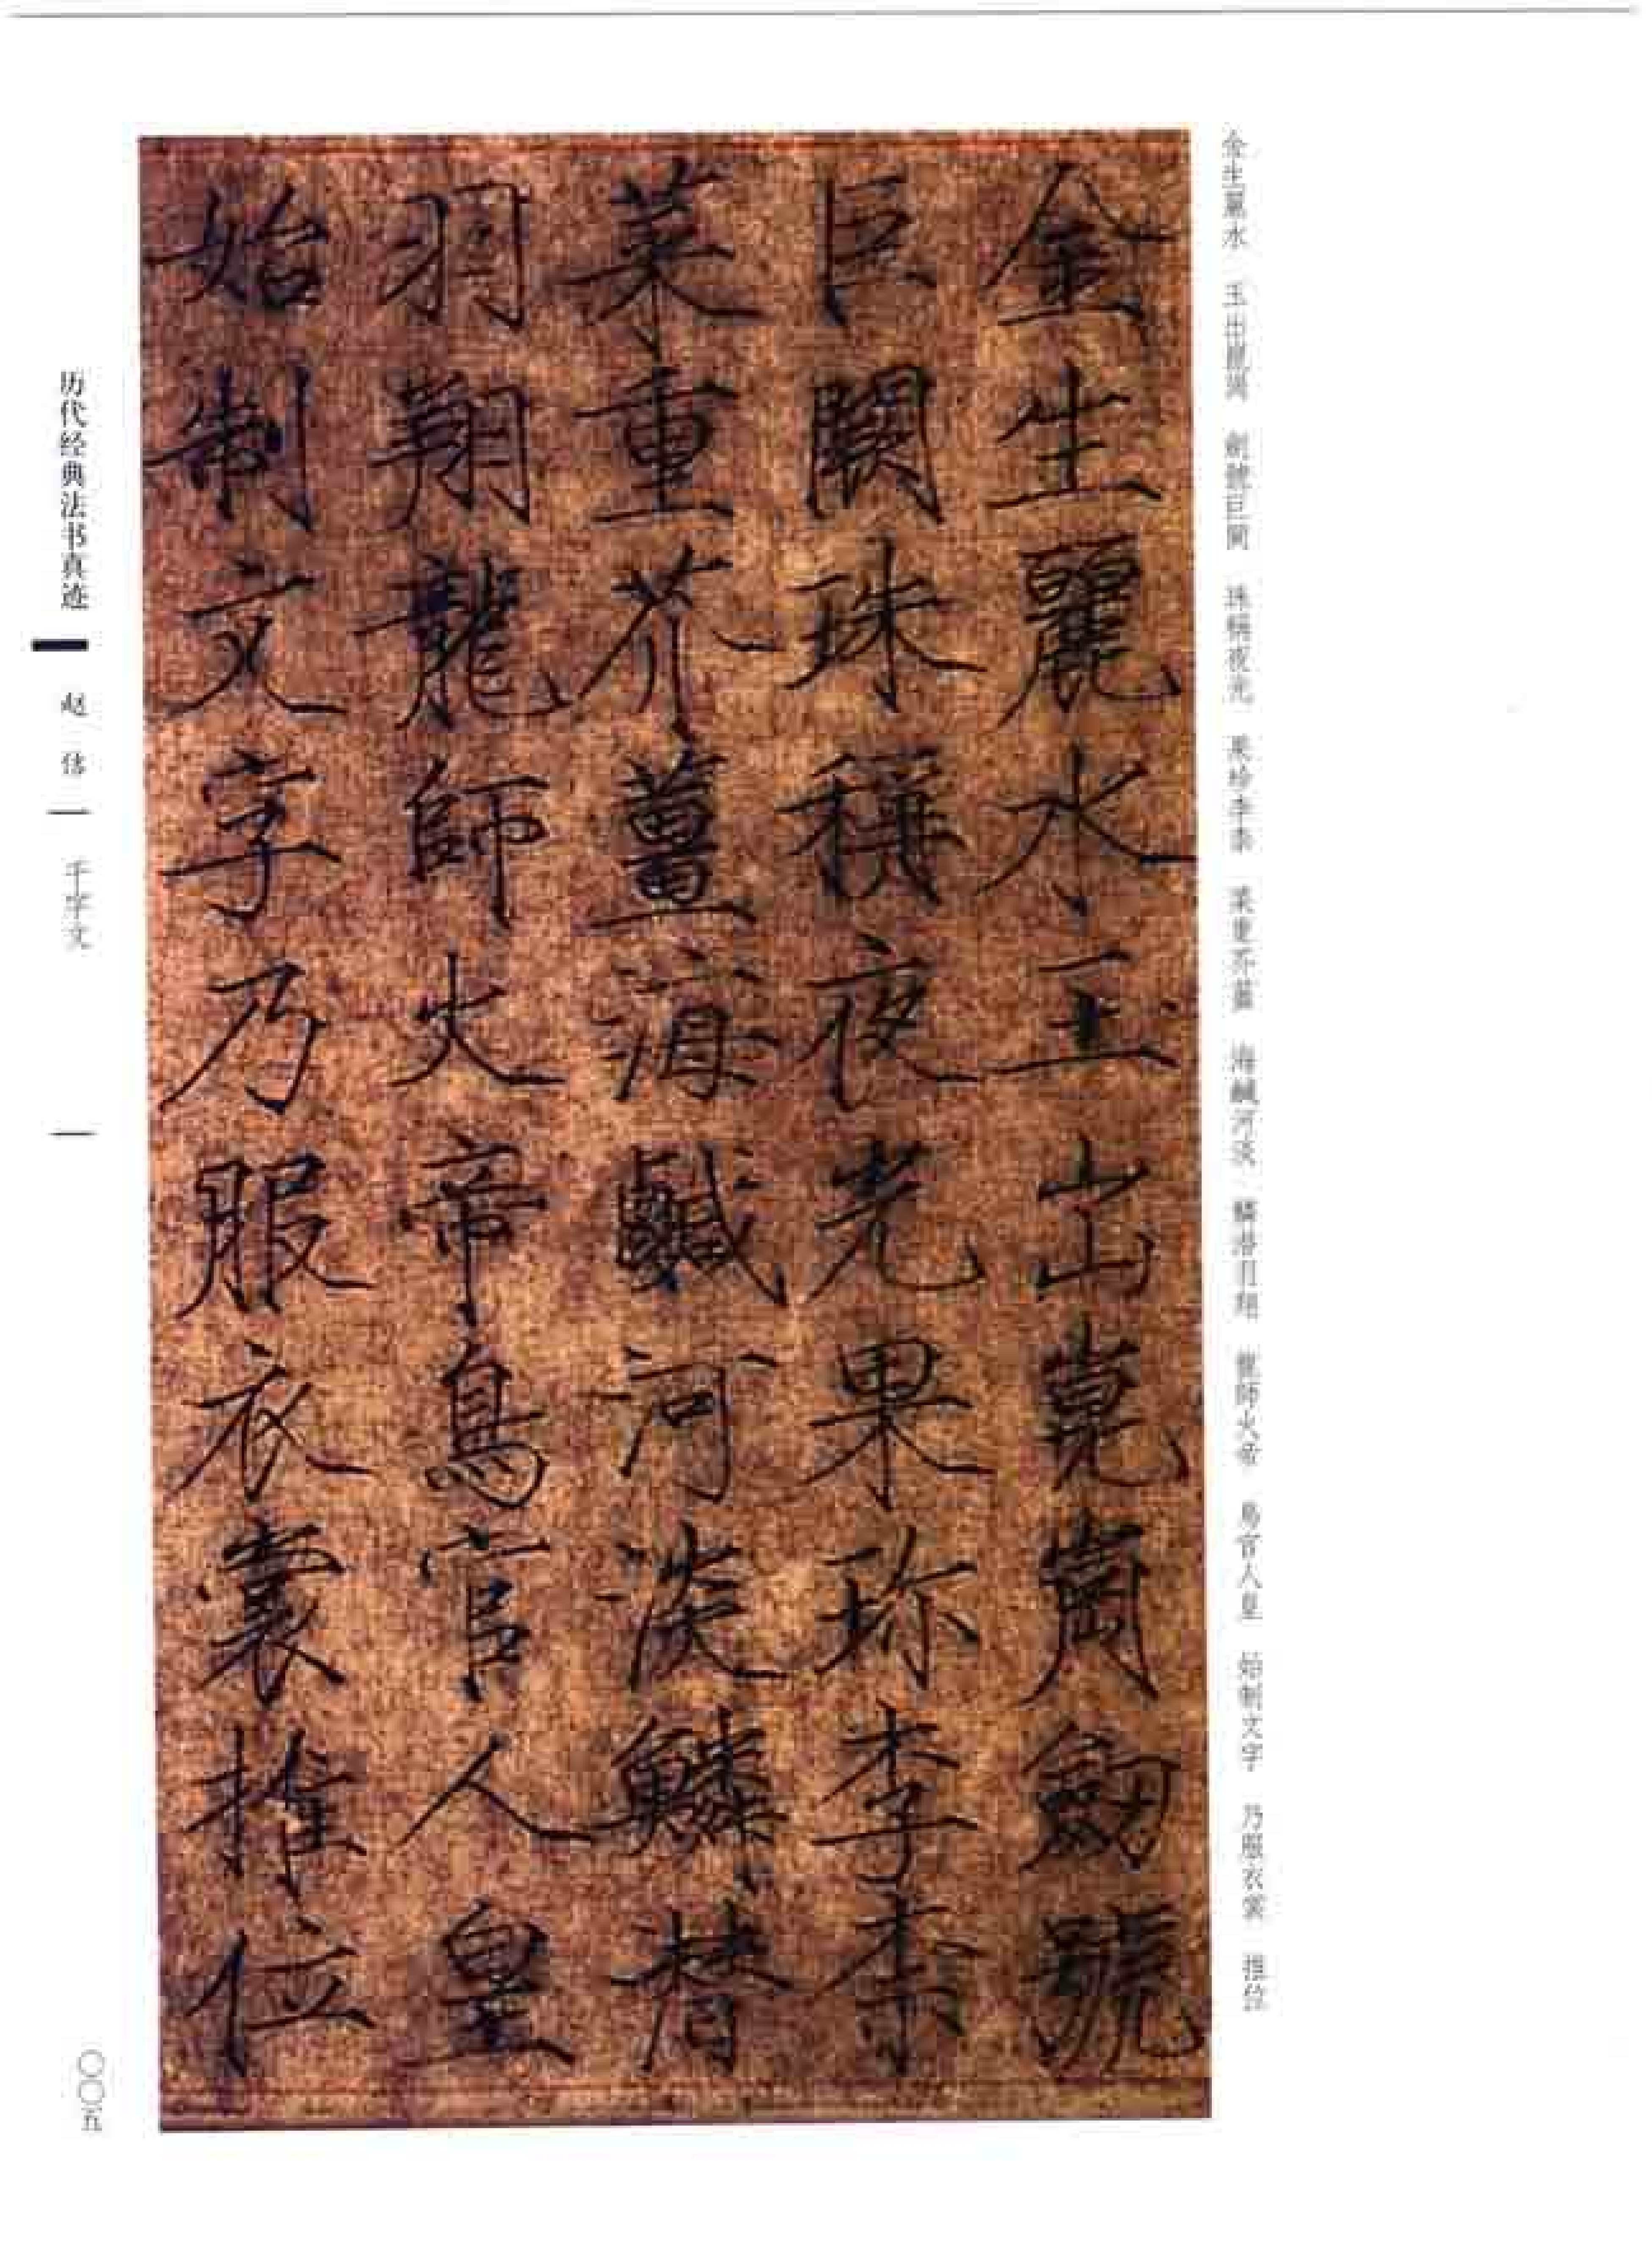 金生麗水 玉出崑崗 劍號巨闕 珠稱夜光 果珍李柰 菜重芥薑 海鹹河淡 鱗潜羽翔 龍師火帝 鳥官人皇 始制文字 乃服衣裳 推位
金生麗水玉出崑崗劍號
巨闕珠稱夜光果珎李柰
菜重芥薑海鹹河淡鱗替
羽翔龍師火帝鳥官人皇
始制文字乃服衣裳推位
历代经典法书真迹 赵佶 千字文
〇〇五